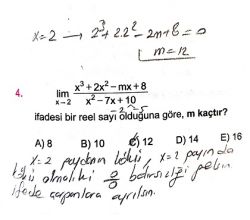 x=2 → 2³+2.2²-2m+8=0
m=12
4. lim x→2 x³+2x²-mx+8 / x²-7x+10
-2 -5
ifadesi bir reel sayı olduğuna göre, m kaçtır?
A) 8 B) 10 C) 12 D) 14 E) 16
x=2 paydanın kökü x=2 payında
kökü olmalıki 0/0 belirsizliği gelsin.
ifade çarpanlara ayrılsın.